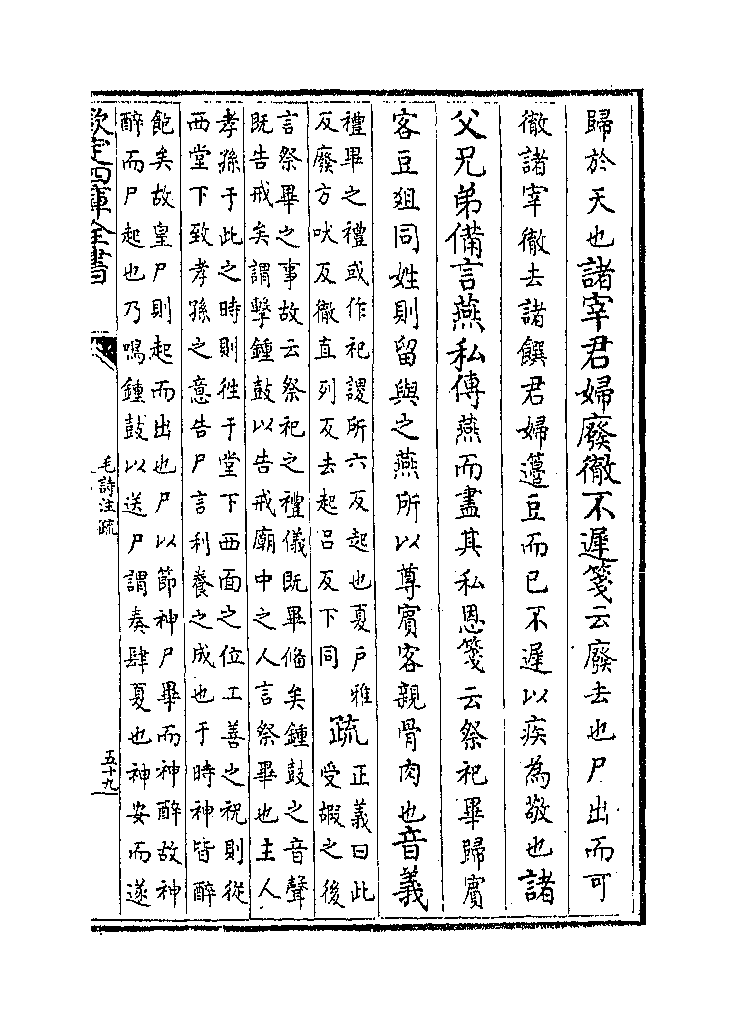 歸於天也諸宰君婦廢徹不遲箋云廢去也尸出而可
徹諸宰徹去諸饌君婦籩豆而已不遲以疾為敬也諸
父兄弟備言燕私傳燕而盡其私恩箋云祭祀畢歸賓
客豆俎同姓則留與之燕所以尊賓客親骨肉也音義
禮畢之禮或作祀謖所六反起也夏戶雅
反廢方吠反徹直列反去起呂反下同
疏
正義曰此
受嘏之後
言祭畢之事故云祭祀之禮儀既畢備矣鍾鼓之音聲
既告戒矣謂擊鍾鼓以告戒廟中之人言祭畢也主人
孝孫于此之時則徃于堂下西面之位工善之祝則從
西堂下致孝孫之意告尸言利養之成也于時神皆醉
飽矣故皇尸則起而出也尸以節神尸畢而神醉故神
醉而尸起也乃鳴鍾鼓以送尸謂奏肆夏也神安而遂
欽定四庫全書
毛詩注疏
五十九